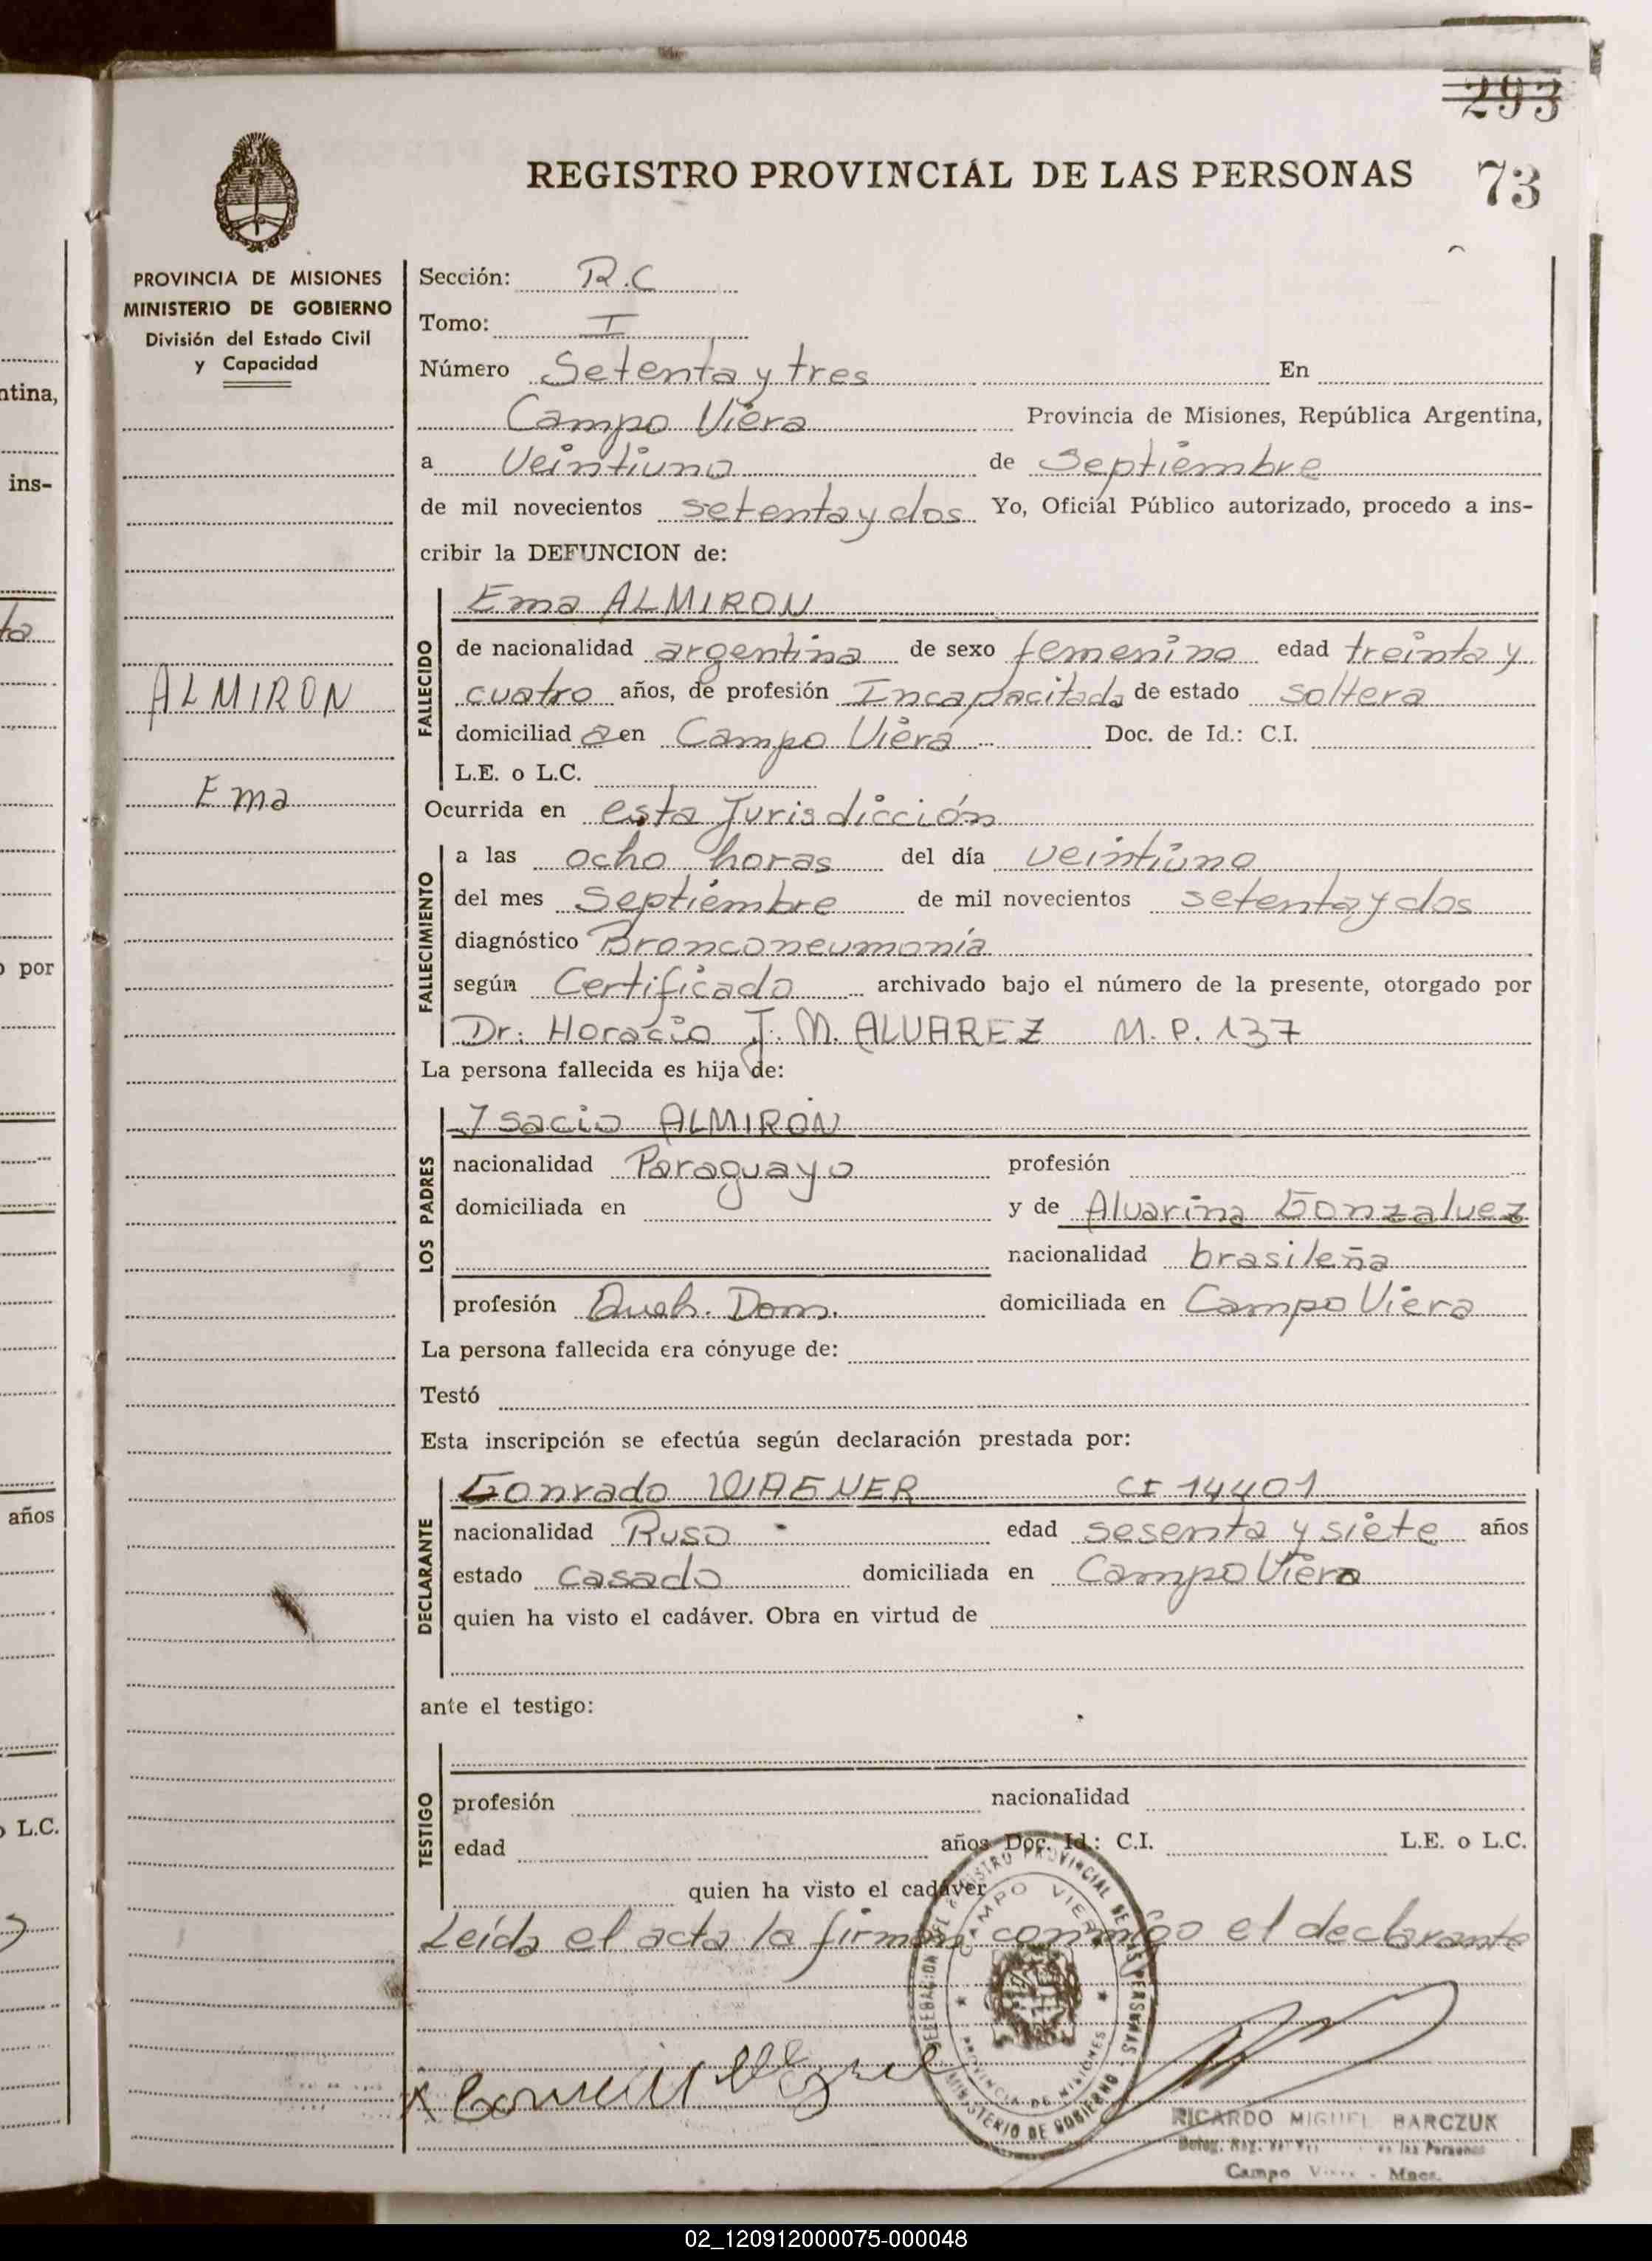 293
REGISTRO PROVINCIAL DE LAS PERSONAS 73
PROVINCIA DE MISIONES
MINISTERIO DE GOBIERNO
División del Estado Civil
y Capacidad
ALMIRON
Ema
Sección: R.C
Tomo: I
Número Setenta y tres En
Campo Viera Provincia de Misiones, República Argentina,
a Veintiuno de Septiembre
de mil novecientos setenta y dos Yo, Oficial Público autorizado, procedo a ins-
cribir la DEFUNCION de:
FALLECIDO
Ema ALMIRON
de nacionalidad argentina de sexo femenino edad treinta y
cuatro años, de profesión Incapacitada de estado soltera
domiciliad a en Campo Viera Doc. de Id.: C.I.
L.E. o L.C.
Ocurrida en esta Jurisdicción
FALLECIMIENTO
a las ocho horas del día veintiuno
del mes Septiembre de mil novecientos setenta y dos
diagnóstico Bronconeumonía
según Certificado archivado bajo el número de la presente, otorgado por
Dr: Horacio J. M. ALVAREZ M. P. 137
La persona fallecida es hija de:
LOS PADRES
Isacio ALMIRON
nacionalidad Paraguayo profesión
domiciliada en y de Alvarina Gonzalvez
nacionalidad brasileña
profesión Queh. Dom. domiciliada en Campo Viera
La persona fallecida era cónyuge de:
Testó
Esta inscripción se efectúa según declaración prestada por:
DECLARANTE
Conrado WAGNER CI 14401
nacionalidad Ruso edad sesenta y siete años
estado Casado domiciliada en Campo Viera
quien ha visto el cadáver. Obra en virtud de
ante el testigo:
TESTIGO
profesión nacionalidad
edad años Doc. Id.: C.I. L.E. o L.C.
quien ha visto el cadáver
Leída el acta la firman conmigo el declarante
DELEGACION DEL REGISTRO PROVINCIAL DE LAS PERSONAS
MINISTERIO DE GOBIERNO
CAMPO VIERA
PROVINCIA DE MISIONES
RICARDO MIGUEL BARCZUK
de las Personas
Campo Viera - Mnes.
ntina,
ins-
ta
o por
años
o L.C.
02_120912000075-000048